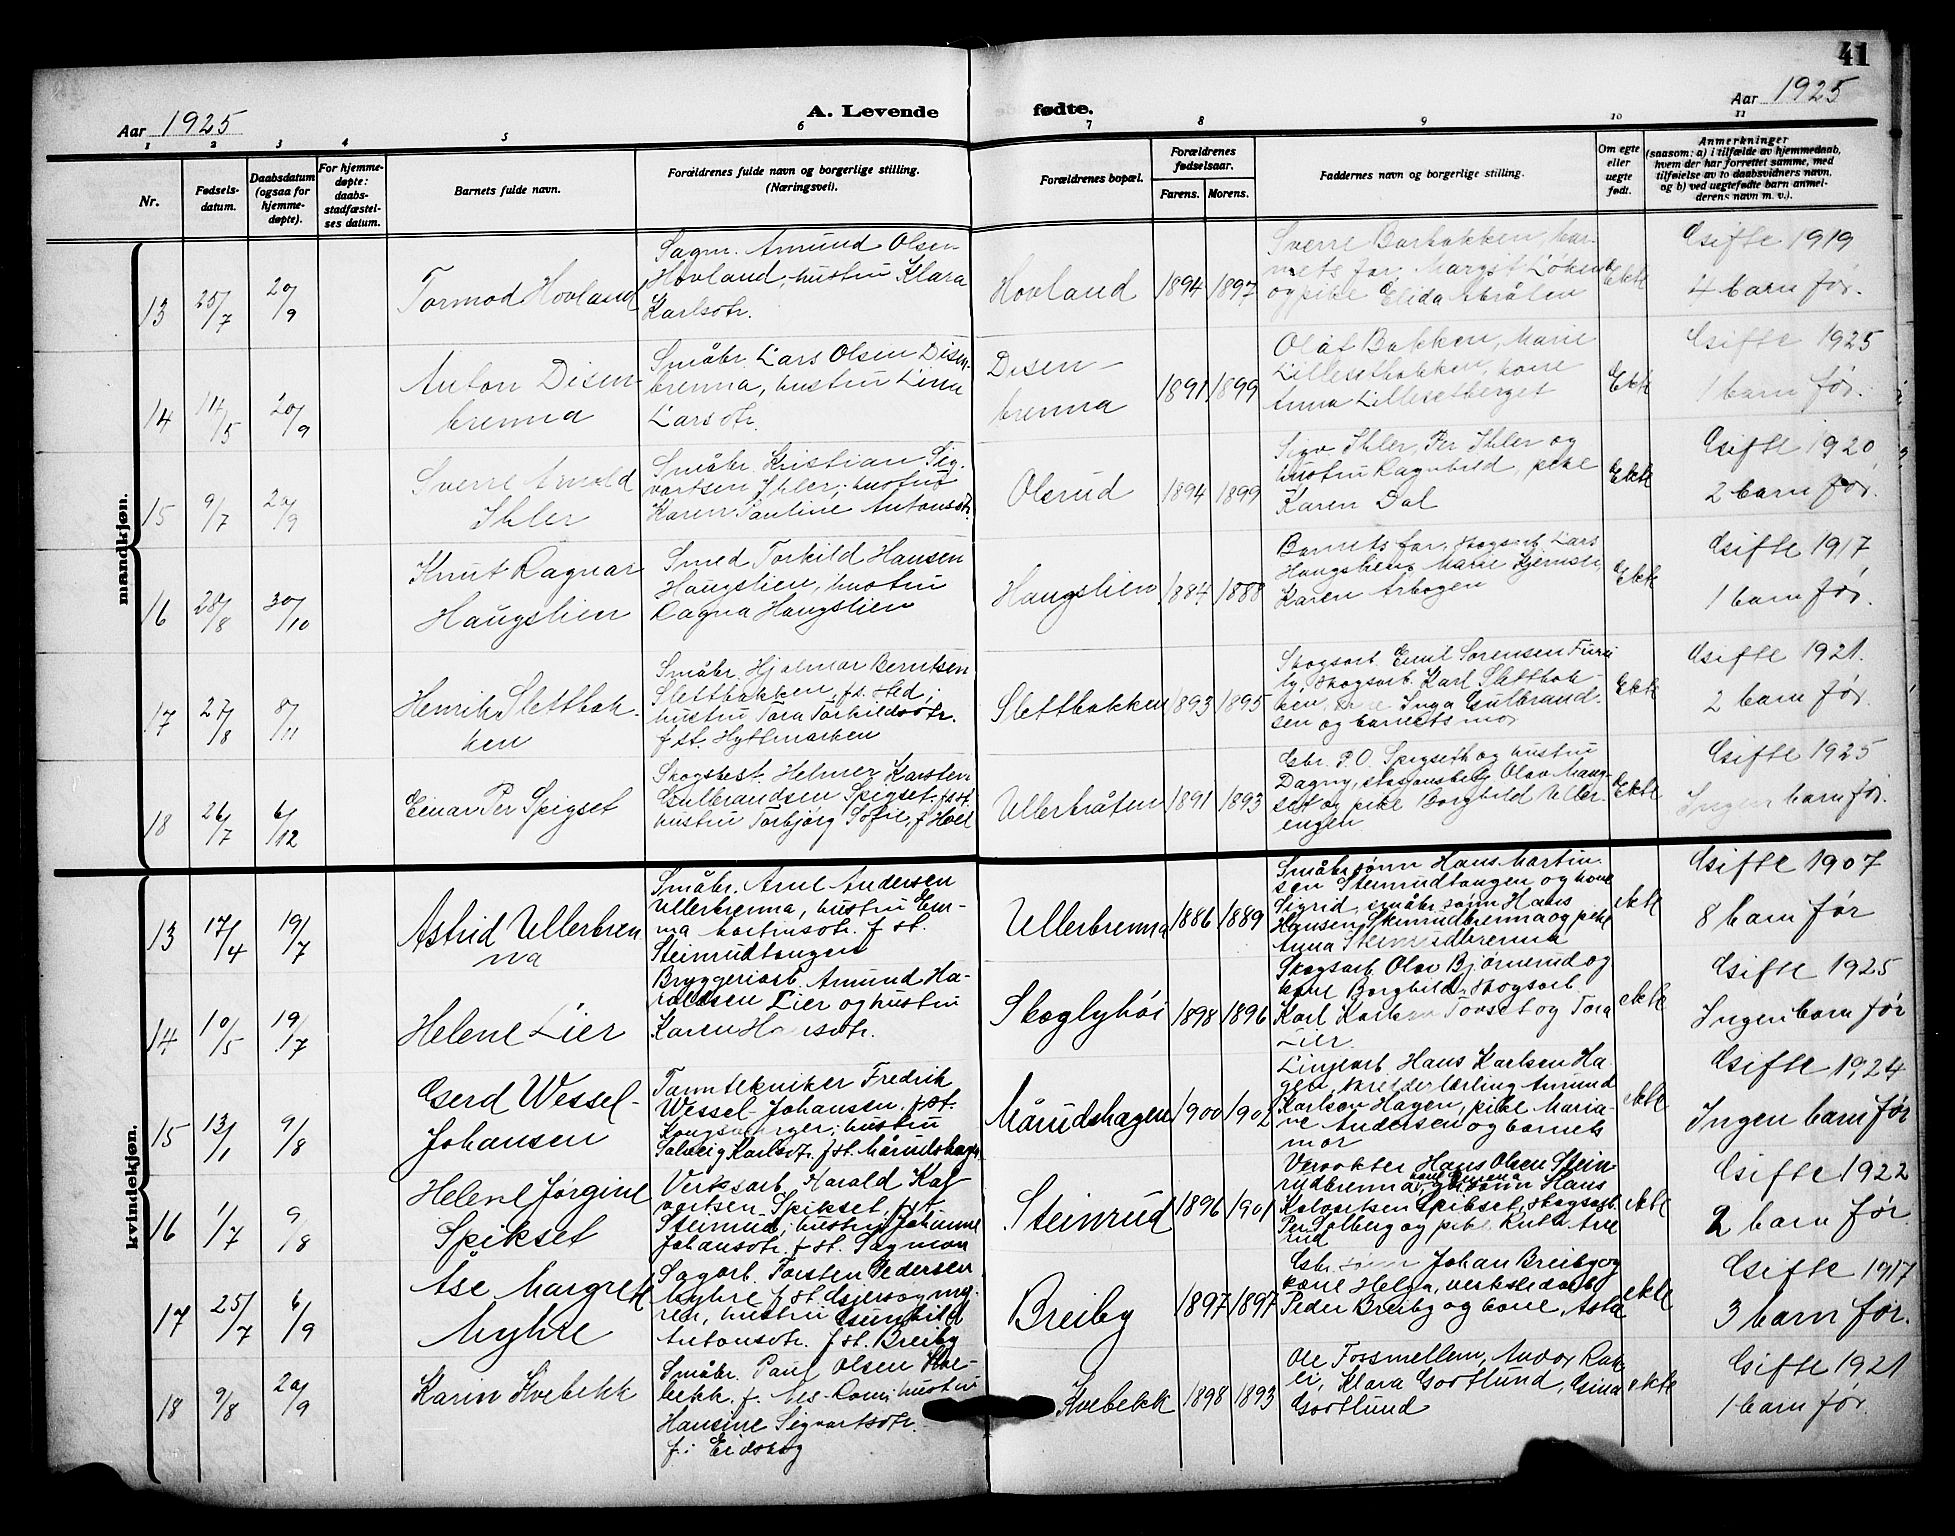 41
Aar 1925
A. Levende
fødte.
Aar 1925
1 2 3 4 5 6 7 8 9 10 11
Nr.
Fødsels-
datum.
Daabsdatum
(ogsaa for
hjemme-
døpte).
For hjemme-
døpte:
daabs-
stadfæstel-
ses datum.
Barnets fulde navn.
Forældrenes fulde navn og borgerlige stilling.
(Næringsvei).
Forældrenes bopæl.
Forældrenes
fødselsaar.
Farens. Morens.
Faddernes navn og borgerlige stilling.
Om egte
eller
uegte
født.
Anmerkninger
(saasom: a) i tilfælde av hjemmedaab,
hvem der har forrettet samme, med
tilføielse av to daabsvidners navn,
og b) ved uegtefødte barn anmel-
derens navn m. v.).
mandkjøn.
13 25/7 20/9
Tormod Hovland
Sagm. Amund Olsen
Hovland, hustru Klara
Karlsdtr.
Hovland 1894 1897
Sverre Borbakken, bar-
nets far, Margit Løken
og pike Elida
Ekte
Gifte 1919
4 barn før.
14 14/5 20/9
Anton Disen-
brenna
Småbr. Lars Olsen Disen-
brenna, hustru Lina
Larsdtr.
Disen-
brenna
1891 1899
Olaf Bakken, Marie
Lillesetbakken, kone
Anna Lillesetberget
Ekte
Gifte 1925
1 barn før.
15 9/7 20/9
Sverre Arnold
Ihler
Småbr. Kristian Sig-
vartsen Ihler, hustru
Karen Pauline Antonsdtr.
Olsrud 1894 1899
Sigv. Ihler, Per Ihler og
hustru Ragnhild, pike
Karen Dal
Ekte
Gifte 1920
2 barn før.
16 28/8 30/10
Knut Ragnar
Haugslien
Smed Torkild Hansen
Haugslien, hustru
Ragna Haugslien
Haugslien 1884 1888
Barnets far, skogsarb. Lars
Haugslien, Marie
Karen Arbogen
Ekte
Gifte 1917
1 barn før.
17 27/8 8/11
Henrik Slettbak-
ken
Småbr. Hjalmar Berntsen
Slettbakken, f. st. sted;
hustru Tora Torkildsdtr.
f. st. Hyttmarken
Slettbakken 1893 1895
Skogsarb. Emil Sørensen Furu
ly, skogsarb. Karl Slettbak-
ken, Inga Gulbrand-
sen og barnets mor
Ekte
Gifte 1921.
2 barn før
18 26/7 6/12
Einar Per Spigset
Skogsbest. Helmer Karsten
Gulbrandsen Spigset f. st.
hustru Torbjørg Sofie, f. Hoel
Ullerbråten 1891 1893
Gbr. P. O. Spigseth og hustru
Dagny, Olav Haug-
set og pike Borghild Uller-
engen
Ekte
Gifte 1925
Ingen barn før.
kvindekjøn.
13 17/4 19/7
Astrid Ullerbren
na
Småbr. Arne Andersen
Ullerbrenna, hustru Em-
ma Martinsdtr. f. st.
Steinrudtangen
Ullerbrenna 1886 1889
Småbr.sønn Hans Martin-
sen Steinrudtangen og kone
Sigrid, småbr.sønn Hans
Hansen Steinrudbrenna og pike
Anna Steinrudbrenna
ekte
Gifte 1907
8 barn før
14 10/5 19/7
Helene Lier
Bryggeriarb. Amund Ha-
raldsen Lier og hustru
Karen
Skoglyhøi 1898 1896
Skogsarb. Olav Bjørnerud og
kone Borghild, skogsarb.
Karl Karlsen Tovset og Tora
Lier.
ekte
Gifte 1925
Ingen barn før
15 13/1 9/8
Gerd Wessel-
Johansen
Tanntekniker Fredrik
Wessel-Johansen f. st.
Kongsvinger; hustru
Solveig Karlsdtr. f. st. Mårudshagen
Mårudshagen 1900 1902
Linjearb. Hans Karlsen Ha-
gen, Amund
Karlsen Hagen, pike Maria-
ne Andersen og barnets
mor
ekte
Gifte 1924
Ingen barn før
16 1/7 9/8
Helene Jørgine
Spikset
Verksarb. Harald Kal-
vartsen Spikset, f. st.
Steinrud; hustru Johanne
Johansdtr. f. st. Sagmoen
Steinrud 1896 1901
Hans Olsen Stein-
rudbrenna, Hans
Kalvartsen Spikset, skogsarb.
Per Solberg og pike Ruth
rud
ekte
Gifte 1922
2 barn før.
17 25/7 6/9
Åse Margreth
Myhre
Sagarb. Torsten Pedersen
Myhre f. st. Gjersøymy-
ren, hustru Gunhild
Antonsdtr. f. st. Breiby
Breiby 1897 1897
Gbr. sønn Johan Breiby og
kone Helga, verksted arb.
Peder Breiby og kone, Asta
ekte
Gifte 1917
3 barn før.
18 9/8 20/9
Karin Kvebekk
Småbr. Paul Olsen Kve-
bekk f. hustru
Hansine Sigvartsdtr.
f. i Eidskog
Kvebekk 1898 1893
Ole Forsmellem,
Klara Gortlund, Gina
Gortlund
ekte
Gifte 1921
1 barn før.